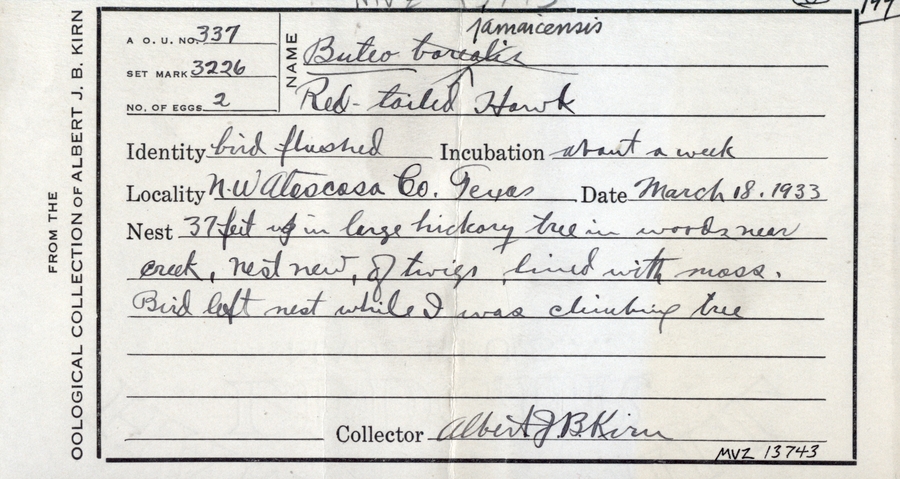 FROM THE
OOLOGICAL COLLECTION OF ALBERT J. B. KIRN
A. O. U. NO. 337
SET MARK 3226
NO. OF EGGS 2
NAME
jamaicensis
Buteo borealis
Red-tailed Hawk
Identity bird flushed Incubation about a week
Locality N.W Atescosa Co. Texas Date March 18. 1933
Nest 37 feet up in large hickory tree in woods near
creek, nest new, of twigs, lined with moss.
Bird left nest while I was climbing tree
Collector Albert J B Kirn
MVZ 13743